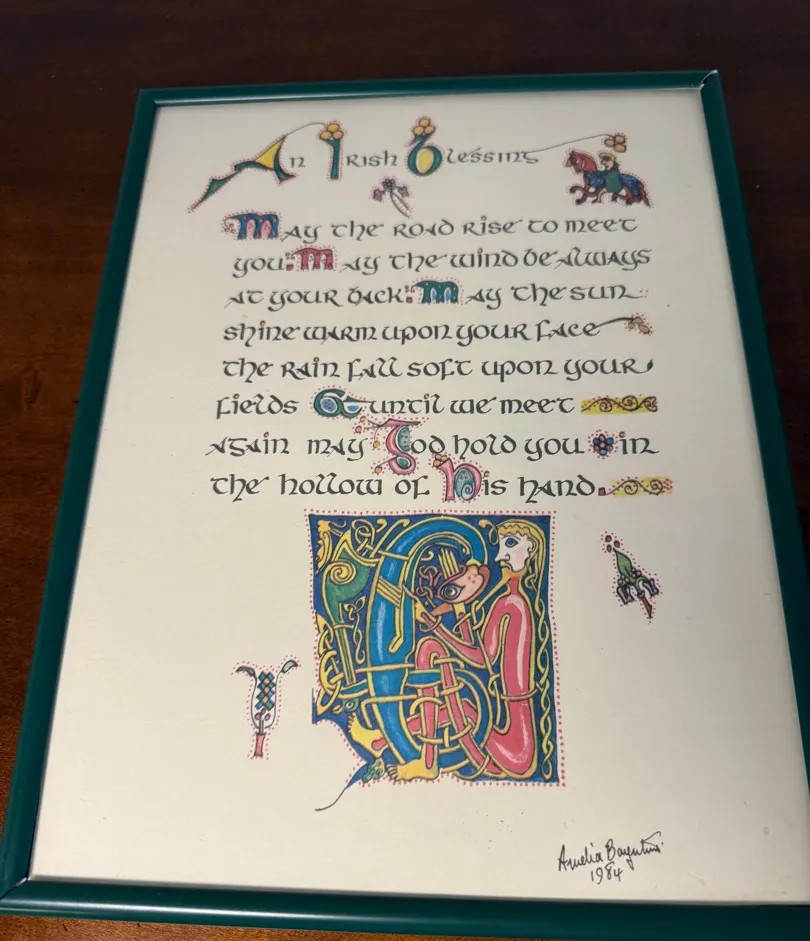 An Irish Blessing
May the road rise to meet
you. May the wind be always
at your back. May the sun
shine warm upon your face
the rain fall soft upon your
fields & until we meet
again may God hold you in
the hollow of His hand.
Amelia
1984